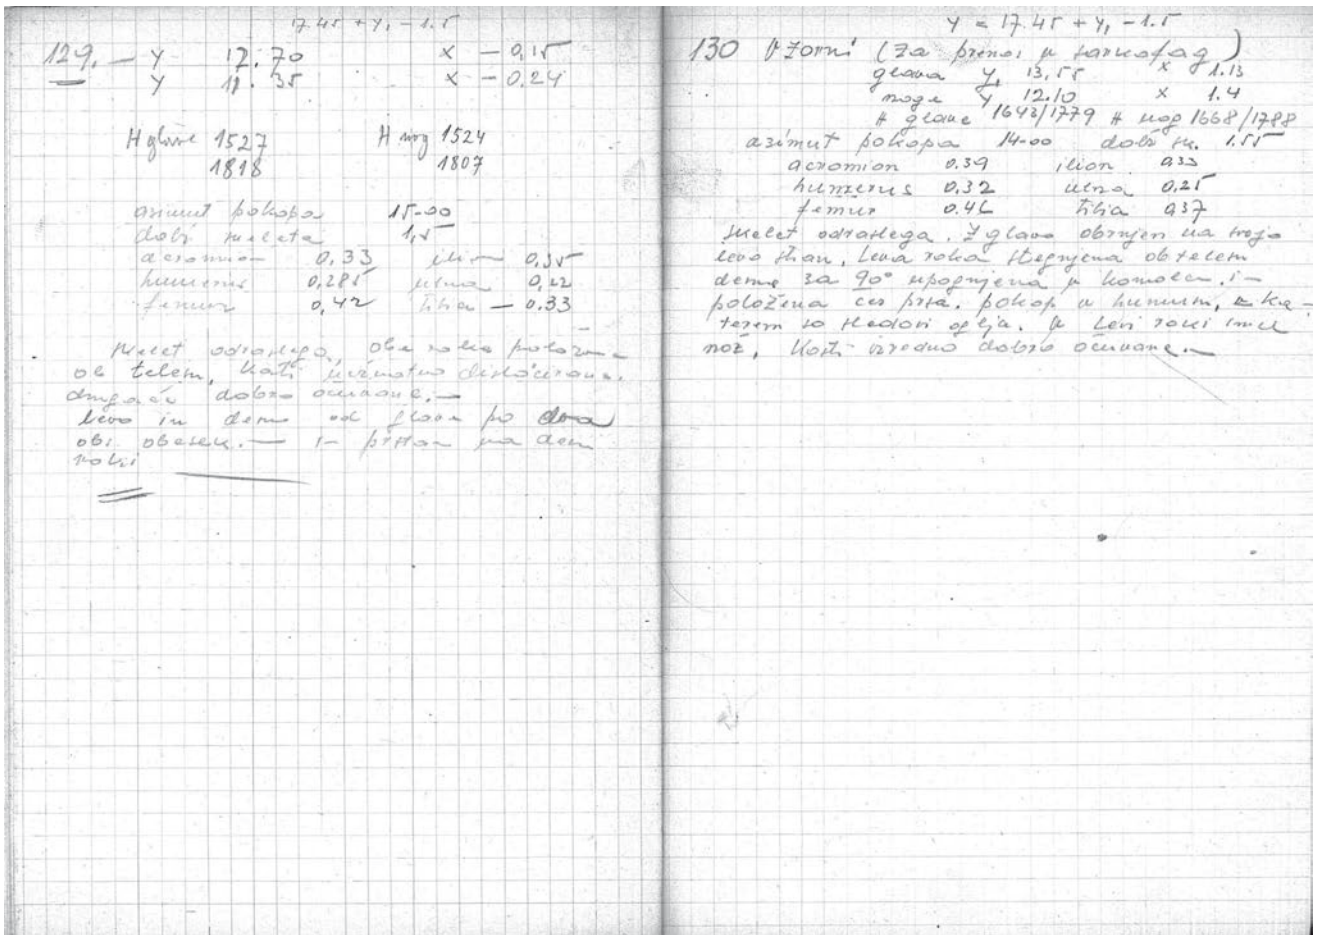 17.45 + y, - 1.5
129. — y 17.70 x - 0,15
y 11.35 x - 0.24
H glave 1527 H nog 1524
1818 1807
azimut pokopa 15-00
dolž skeleta 1,5
acromion 0,33 ilion 0,35
humerus 0,285 ulna 0,22
femur 0,42 tibia — 0.33
skelet odraslega, obe roke položene
ob telesu, kosti dislocirane,
drugače dobro očuvane. —
levo in desno od glave po dva
obs. obeska. — 1- prstan na desni
roki
y = 17.45 + y, - 1.5
130 Vzorni (za prenos v sarkofag)
glava y, 13,55 x 1.13
noge y 12.10 x 1.4
H glave 1643/1779 H nog 1668/1788
azimut pokopa 14-00 dolž sk. 1.55
acromion 0.39 ilion 0.33
humerus 0.32 ulna 0.25
femur 0.46 tibia 0.37
skelet odraslega. Z glavo obrnjen na svojo
levo stran, leva roka stegnjena ob telesu
desna za 90° upognjena v komolcu. i-
položena čez prsa. pokop v humusu, v ka-
terem so sledovi oglja. v levi roki
nož, Kosti izredno dobro očuvane. —